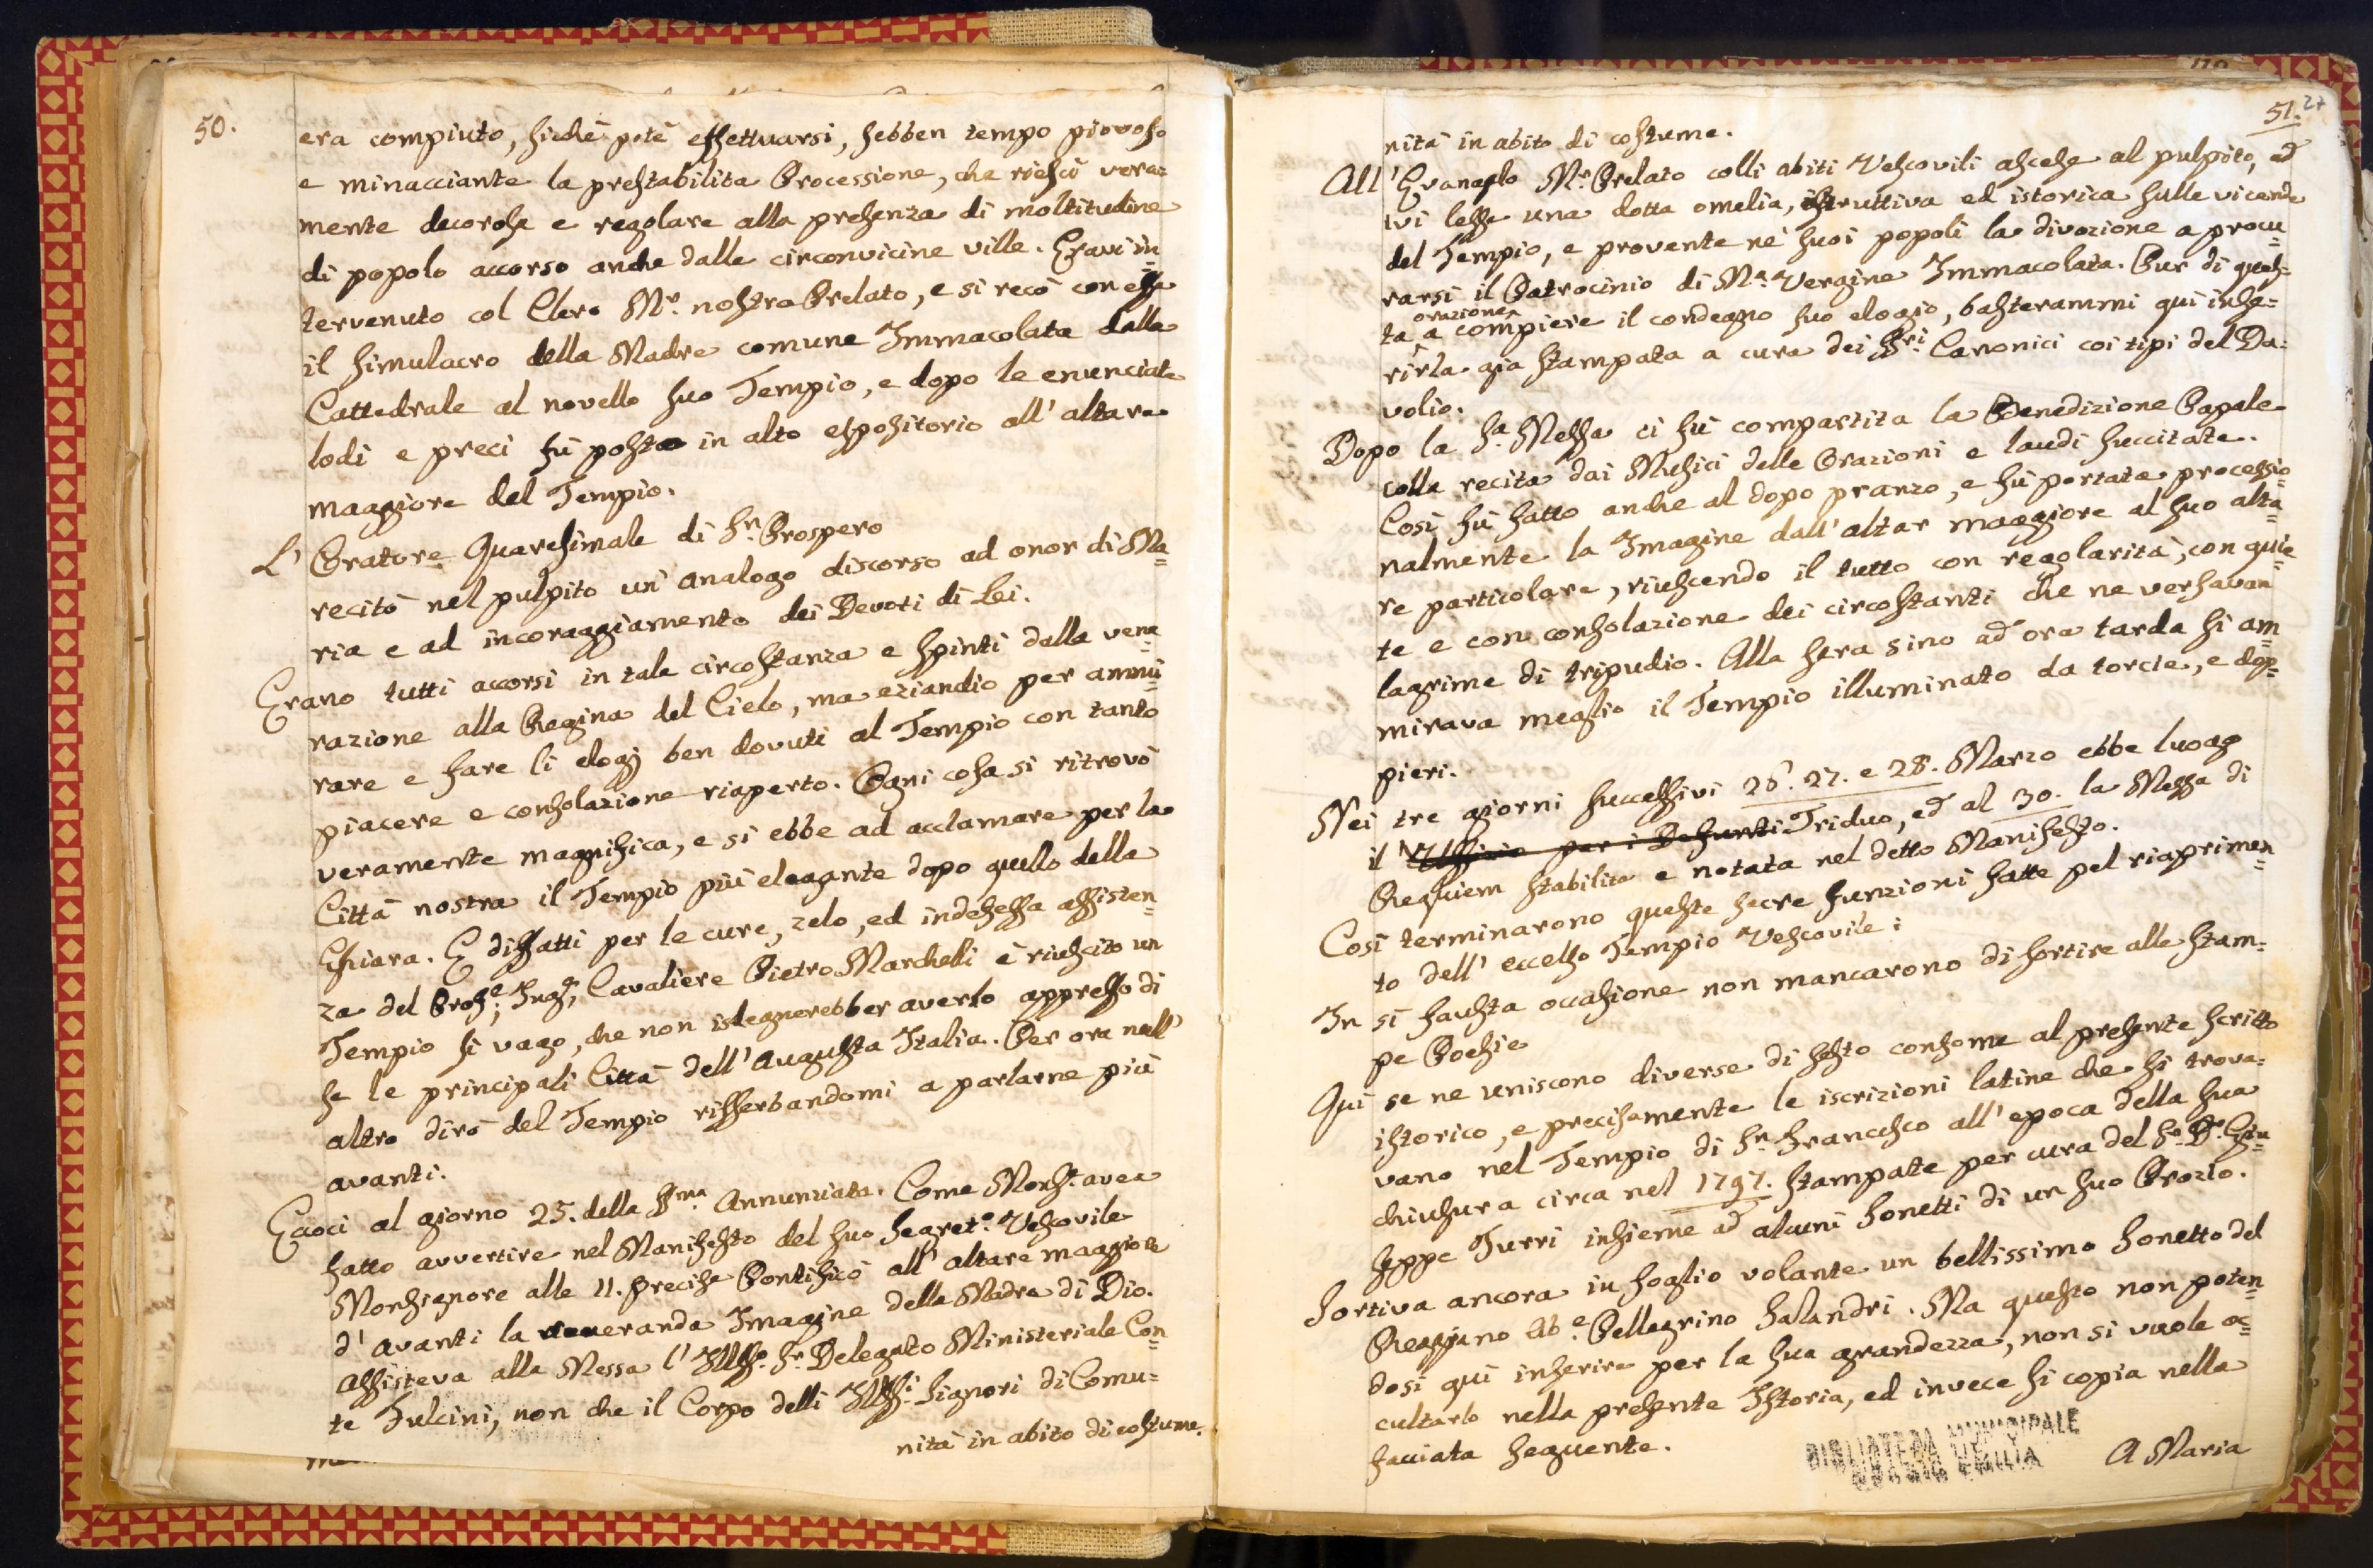 50.
era compiuto, sicchè potè effettuarsi, sebben tempo piovoso
e minacciante la prestabilita Processione, che riescì vera=
mente decorosa e regolare alla presenza di moltitudine
di popolo accorso anche dalle circonvicine ville. Eravi in=
tervenuto col Clero Mr. nostro Prelato, e si recò con esso
il simulacro della Madre comune Immacolata dalla
Cattedrale al novello suo Tempio, e dopo le enunciate
lodi e preci fù posto in alto espositorio all'altare
maggiore del Tempio.
L'Oratore Quaresimale di Sn. Prospero
recitò nel pulpito un'analogo discorso ad onor di Ma=
ria e ad incoraggiamento dei Devoti di Lei.
Erano tutti accorsi in tale circostanza e spinti dalla vene=
razione alla Regina del Cielo, ma eziandio per ammi=
rare e fare li elogj ben dovuti al Tempio con tanto
piacere e consolazione riaperto. Ogni cosa si ritrovò
veramente magnifica, e si ebbe ad acclamare per la
Città nostra il Tempio più elegante dopo quello della
Ghiara. E diffatti per le cure, zelo, ed indefessa assisten=
za del Profe. Inge. Cavaliere Pietro Marchelli è riuscito un
Tempio sì vago, che non isdegnerebber averlo appresso di
se le principali Città dell'Augusta Italia. Per ora null'
altro dirò del Tempio risserbandomi a parlarne più
avanti.
Eccoci al giorno 25. della SSma. Annunziata. Come Monsr. avea
fatto avvertire nel Manifesto del suo Segreto. Vescovile
Monsignore alle 11. precise Pontificò all'altare maggiore
d'avanti la veneranda Imagine della Madre di Dio.
Assisteva alla Messa l'Illsso. Sr. Delegato Ministeriale Con=
te Fulcini, non che il Corpo delli Illssi. Signori di Comu=
nità in abito di costume.
51. 27
nità in abito di costume.
All'Evangelo Mr. Prelato colli abiti Vescovili ascese al pulpito, ed
ivi lesse una dotta omelia, istruttiva ed istorica sulle vicende
del Tempio, e provente nè suoi popoli la divozione a procu=
rarsi il Patrocinio di Ma. Vergine Immacolata. Pur di ques=
orazione
ta a compiere il condegno suo elogio, basterammi qui inse=
rirla già stampata a cura dei SSri. Canonici coi tipi del Da=
volio.
Dopo la Sa. Messa ci fù compartita la Benedizione Papale
colla recita dai Musici delle Orazioni e laudi succitate.
Così fù fatto anche al dopo pranzo, e fù portata processio=
nalmente la Imagine dall'altar maggiore al suo alta=
re particolare, riuscendo il tutto con regolarità, con quie=
te e con consolazione dei circostanti che ne versavan
lagrime di tripudio. Alla sera sino ad ora tarda si am=
mirava meglio il Tempio illuminato da torcie, e dop=
pieri.
Nei tre giorni successivi 26. 27. e 28. Marzo ebbe luogo
il Uffizio per i Defunti Triduo, ed al 30. la Messa di
Requiem stabilita e notata nel detto Manifesto.
Così terminarono queste sacre funzioni fatte pel riaprimen=
to dell'eccelso Tempio Vescovile:
In sì fausta occasione non mancarono di sortire alle stam=
pe Poesie
Qui se ne uniscono diverse di sesto consome al presente scritto
istorico, e precisamente le iscrizioni latine che si trova=
vano nel Tempio di Sn. Francesco all'epoca della sua
chiusura circa nel 1797. stampate per cura del Sr. Dr. Giu=
seppe Turri insieme ad alcuni Sonetti di un suo Prozio.
Sortiva ancora in foglio volante un bellissimo Sonetto del
Reggiano Abe. Pellegrino Salandri. Ma questo non poten=
dosi qui inserire per la sua grandezza, non si vuole oc=
cultarlo nella presente Istoria, ed invece si copia nella
facciata seguente.
A Maria
BIBLIOTECA MUNICIPALE
REGGIO EMILIA